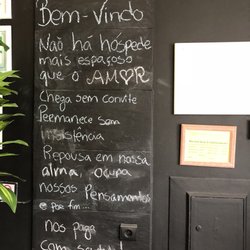 Bem-vindo
Não há hóspede
mais espaçoso
que o AMOR
Chega sem convite
Permanece sem
insistência
Repousa em nossa
alma, ocupa
nossos Pensamentos
e por fim...
nos paga
com saudade!